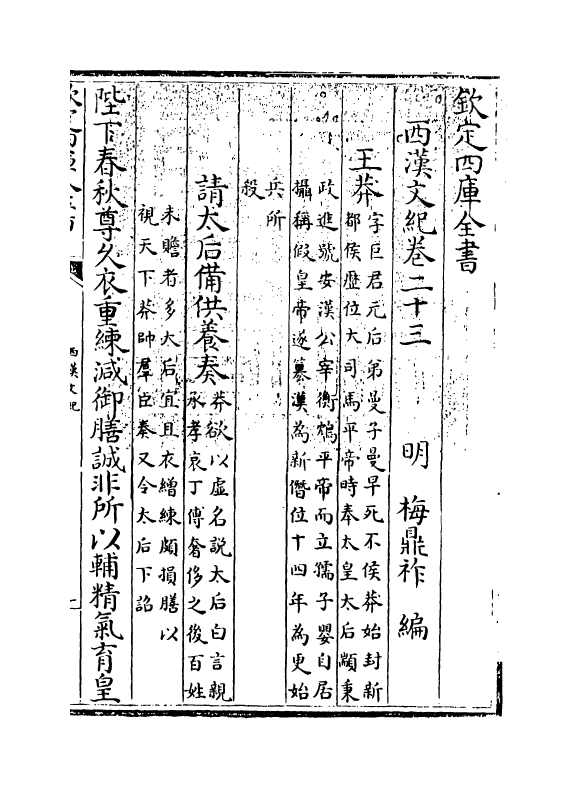 欽定四庫全書
西漢文紀卷二十三
明 梅鼎祚 編
王莽
字巨君元后弟曼子曼早死不侯莽始封新
都侯歴位大司馬平帝時奉太皇太后顓秉
政進號安漢公宰衡鴆平帝而立孺子嬰自居
攝稱假皇帝遂簒漢為新僭位十四年為更始
兵所
殺
請太后備供養奏
莽欲以虚名説太后白言親
承孝哀丁傅奢侈之後百姓
未贍者多太后宜且衣繒練頗損膳以
視天下莽帥羣臣奏又令太后下詔
陛下春秋尊久衣重練減御膳誠非所以輔精氣育皇
西漢文紀